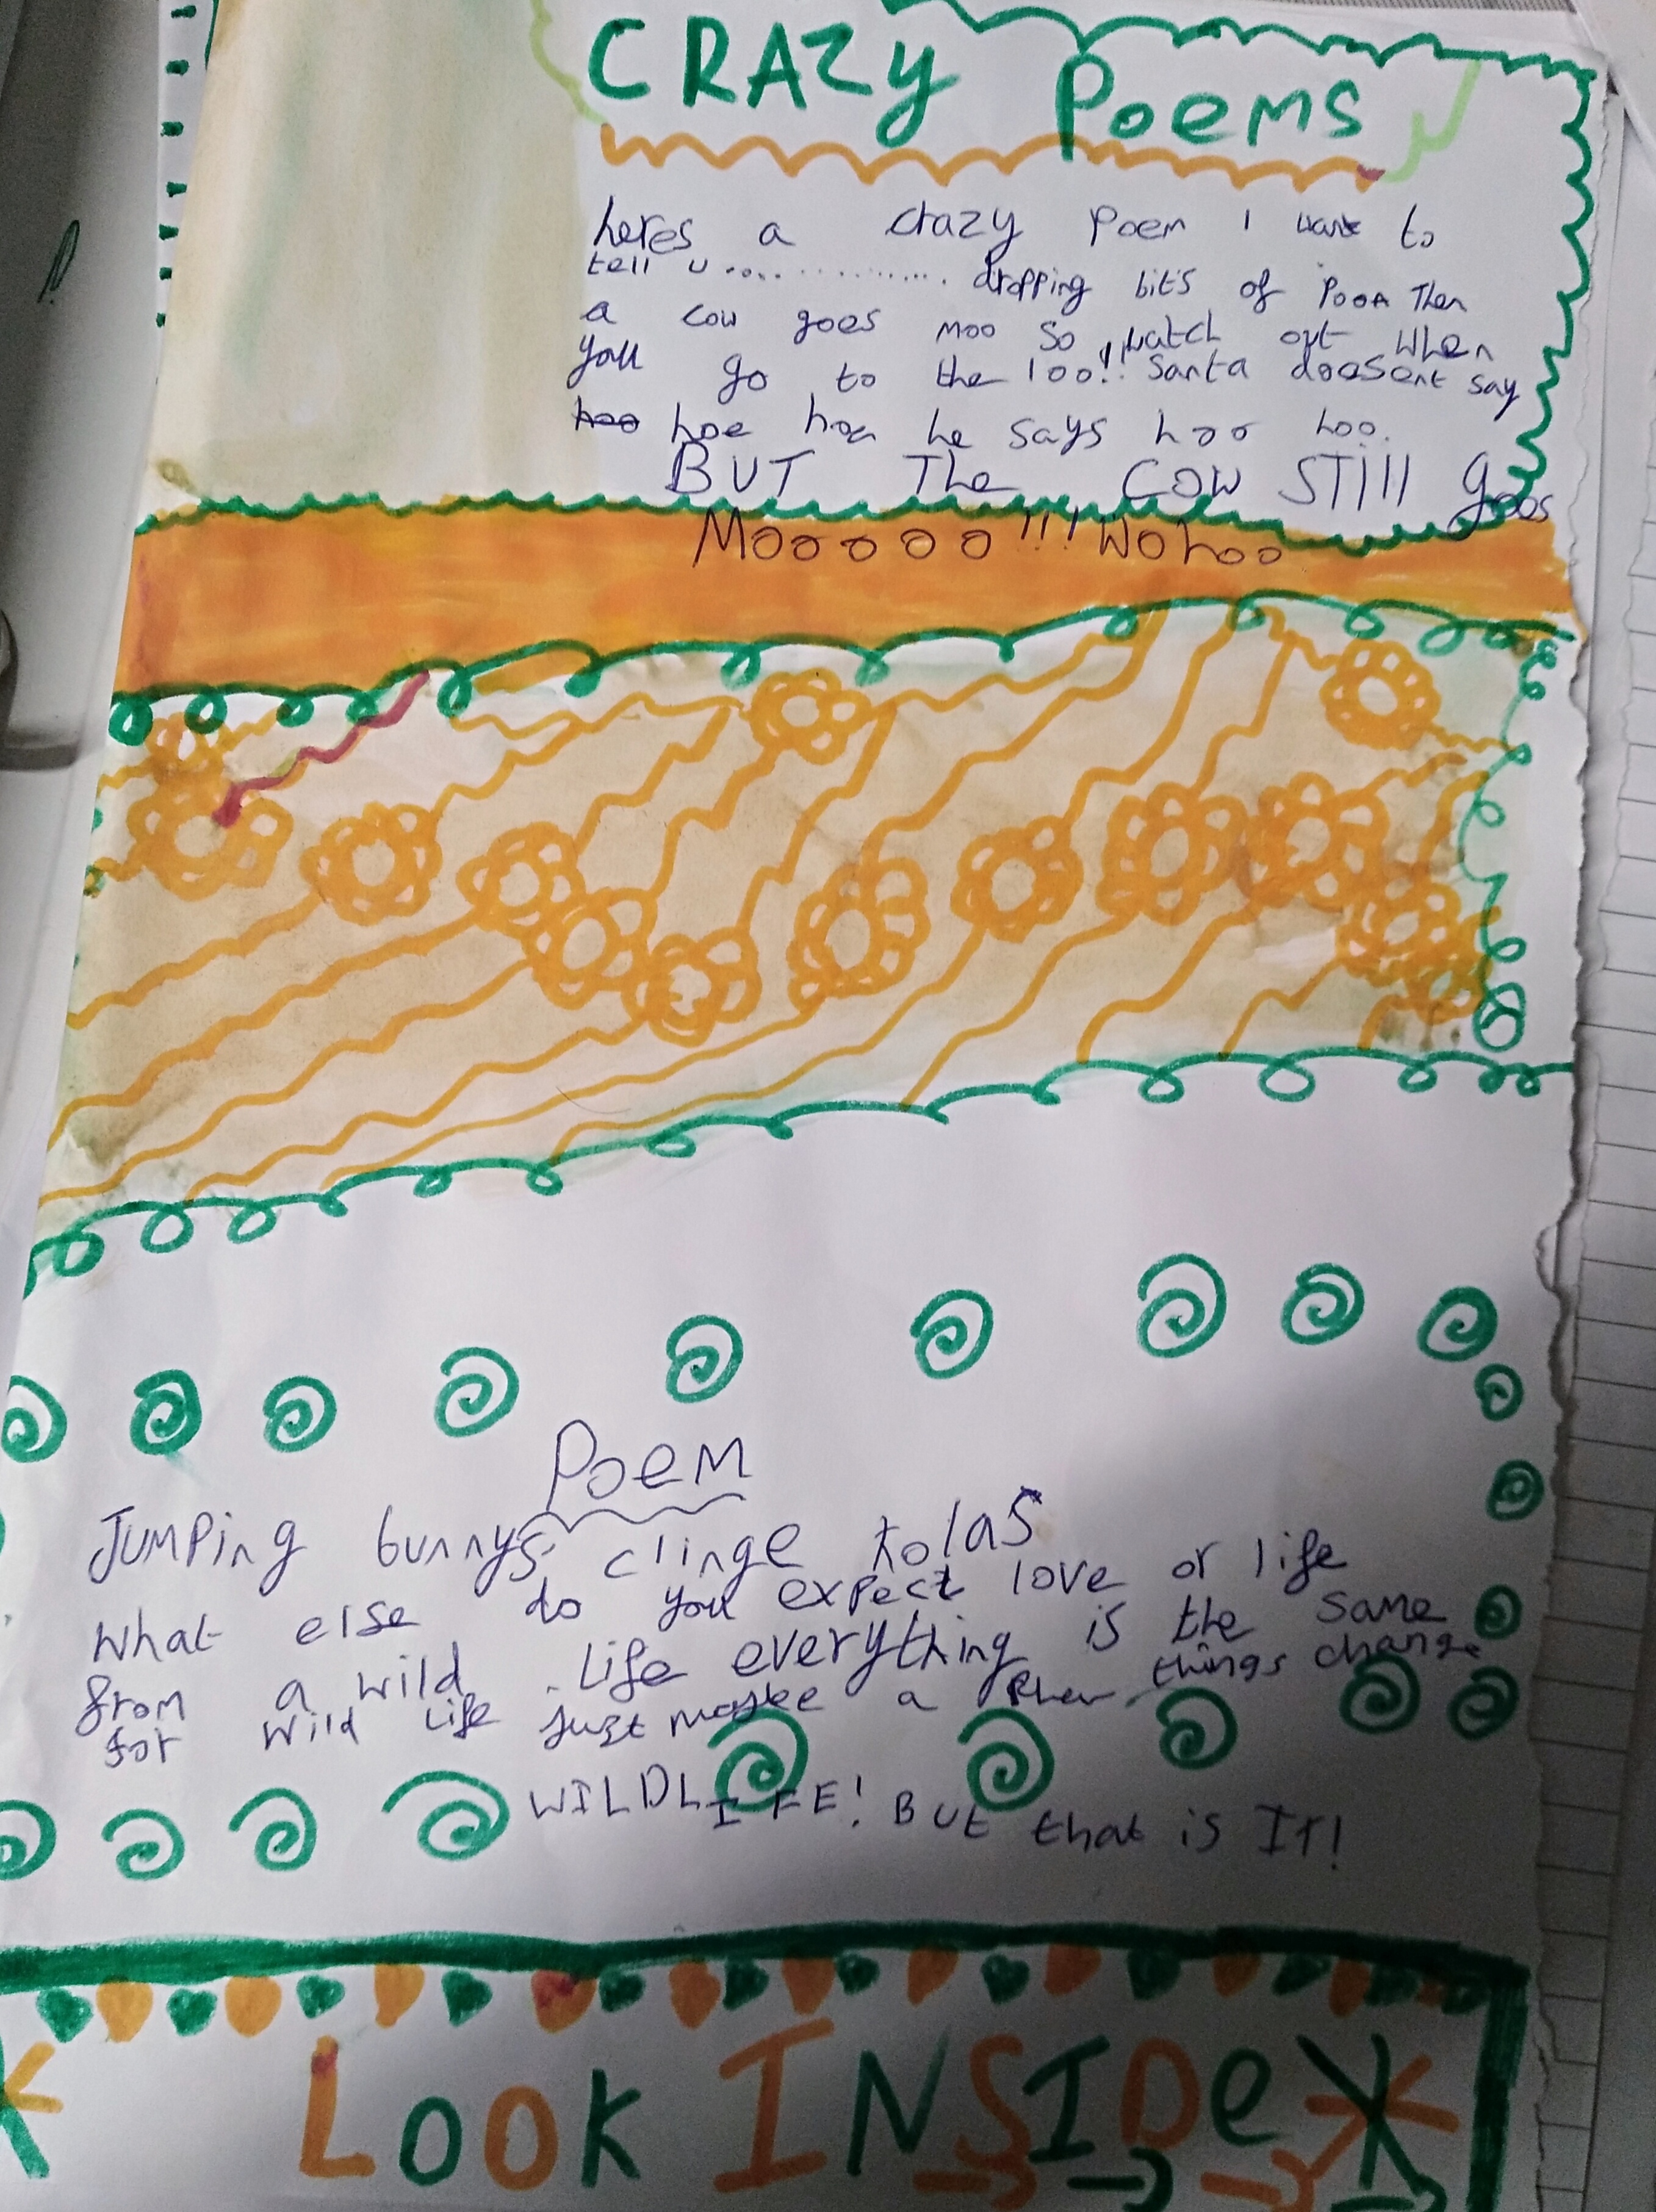 CRAZy Poems
heres a crazy Poem I want to
tell u ................ dropping bits of Pooa Then
a cow goes moo so watch out when
you go to the loo!! Santa doesent say
hoo hoe hoe he says hoo hoo.
BUT The COW STill goos
Mooooo!!! Wohoo
Poem
Jumping bunnys clinge kolas
What else do you expect love or life
from a wild life everything is the same
for wild life just maybe a things change
WILDLIFE! BUt that is IT!
Look INSIDe